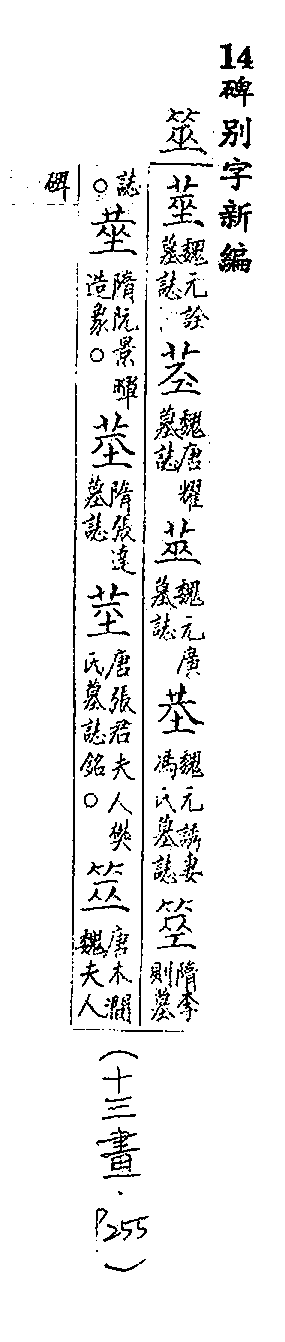 14碑别字新編
筮
莁魏元詮墓誌。莁魏唐耀墓誌莁魏元廣墓誌莁魏元誘妻馮氏墓誌筮隋李則墓
誌。莁隋阮景暉造象。莁隋張達墓誌莁唐張君夫人樊氏墓誌銘。筮唐木澗魏夫人
碑
(十三畫.P255)